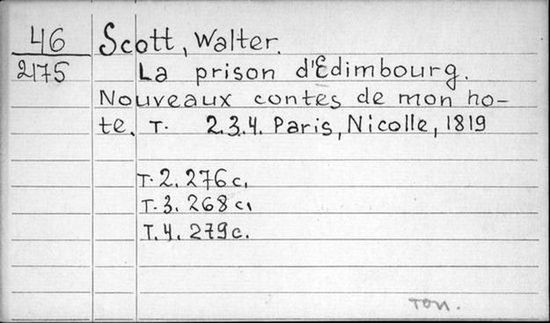 46
2175
Scott, Walter.
La prison d'Edimbourg.
Nouveaux contes de mon ho-
te. T. 2.3.4. Paris, Nicolle, 1819
T. 2. 276 c.
T. 3. 268 c.
T. 4. 279 c.
Топ.